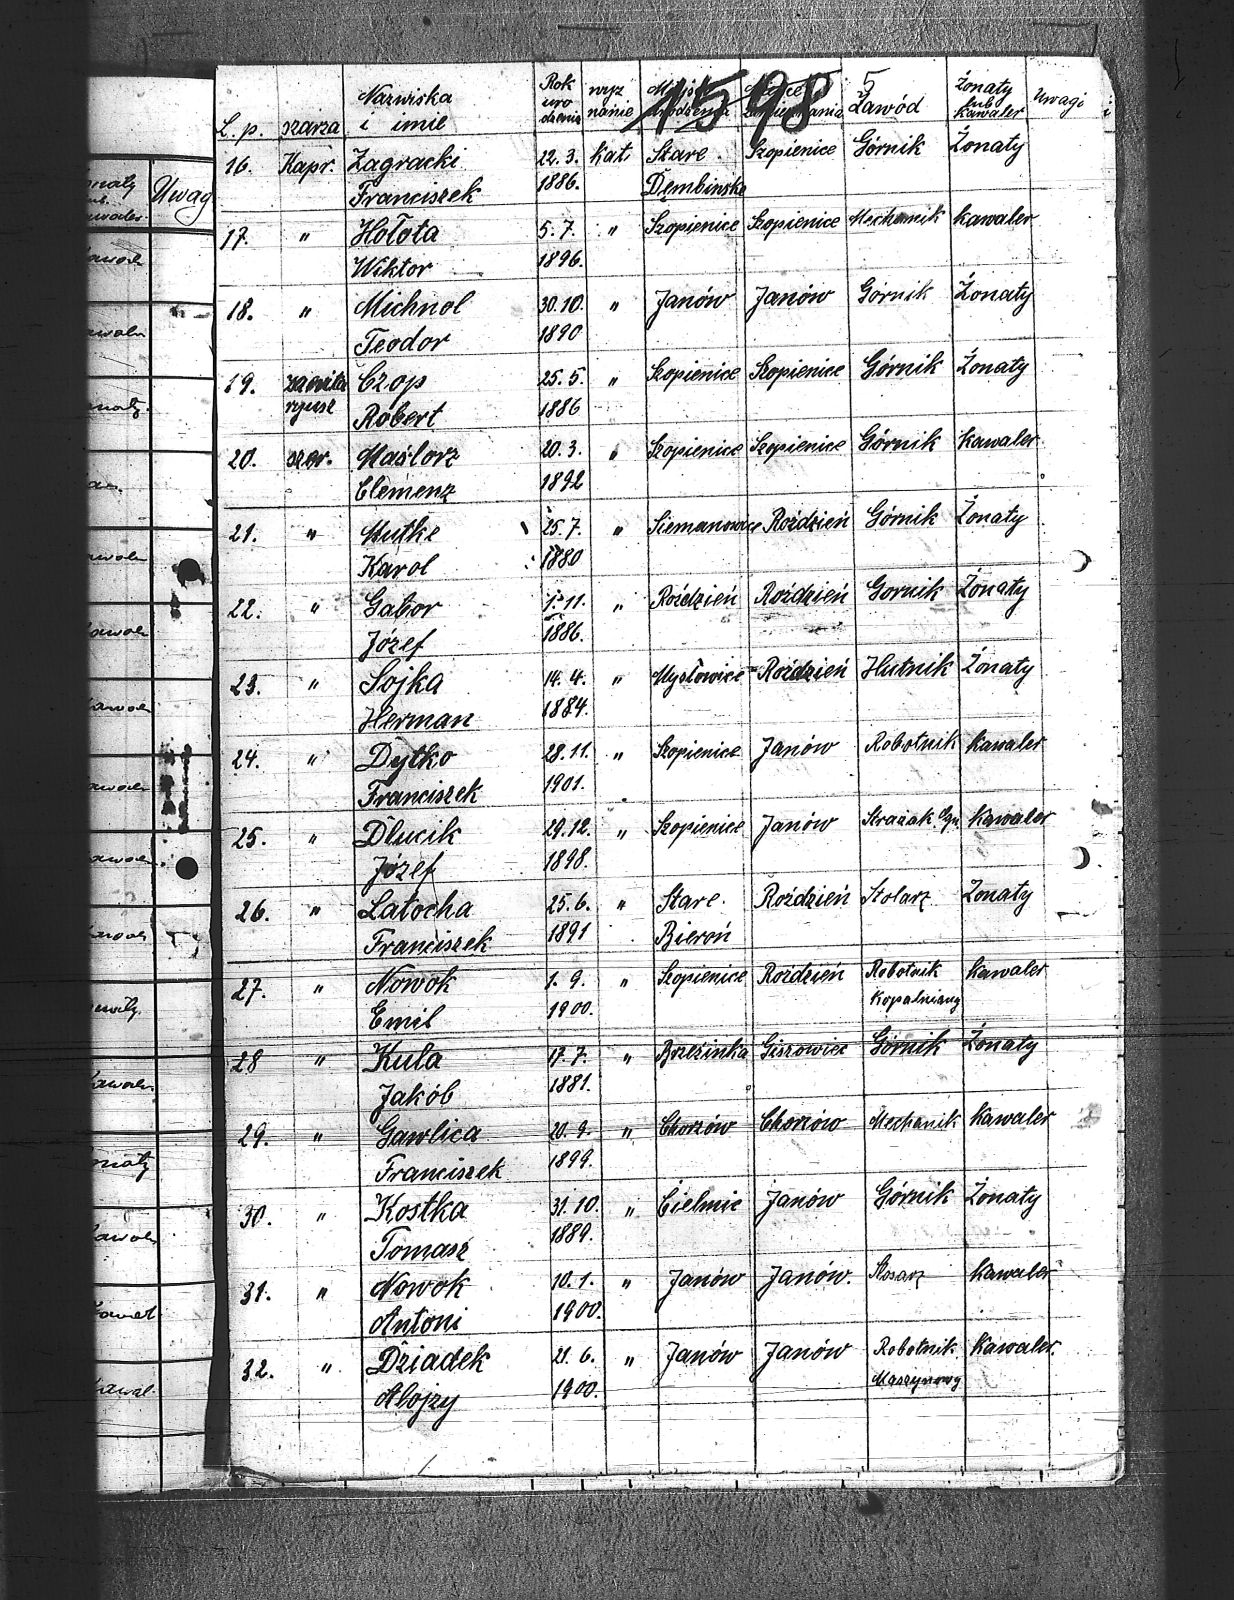 L. p. szarża Nazwiska i imie Rok urodzenia wyznanie Miejsce urodzenia Miejsce zamieszkania Zawód Żonaty lub kawaler Uwagi
1598 5
Uwag
16. Kapr. Zagracki 22. 3. kat. Stare Szopienice Górnik Żonaty
Franciszek 1886. Dembińsko
17. " Hołota 5. 7. " Szopienice Szopienice Mechanik kawaler
Wiktor 1896.
18. " Michnol 30. 10. " Janów Janów Górnik Żonaty
Teodor 1890
19. Czop 25. 5. " Szopienice Szopienice Górnik Żonaty
Robert 1886
20. szer. Maślorz 20. 3. " Szopienice Szopienice Górnik kawaler
Clemenz 1892
21. " Mutke 25. 7. " Siemanowice Roździeń Górnik Żonaty
Karol 1880
22. " Gabor 1. 11. " Roździeń Roździeń Gornik Żonaty
Józef 1886.
23. " Sojka 14. 4. " Mysłowice Roździeń Hutnik Żonaty
Herman 1884.
24. " Dytko 28. 11. " Szopienice Janów Robotnik kawaler
Franciszek 1901.
25. " Dlucik 29. 12. " Szopienice Janów Strażak Ogn. kawaler
Józef 1898.
26. " Latocha 25. 6. " Stare Roździeń Stolarz Żonaty
Franciszek 1891 Bieroń
27. " Nowok 1. 9. " Szopienice Roździeń Robotnik kawaler
Emil 1900. Kopalniany
28 " Kula 17. 7. " Brzezinka Giszowiec Górnik Żonaty
Jakób 1881.
29. " Gawlica 20. 9. " Chorzów Chorzów Mechanik kawaler
Franciszek 1899.
30. " Kostka 31. 10. " Cielmic Janów Górnik Żonaty
Tomasz 1889.
31. " Nowok 10. 1. " Janów Janów. Slosarz kawaler
Antoni 1900.
32. " Dziadek 21. 6. " Janów Janów Robotnik kawaler.
Alojzy 1900. Maszynowy